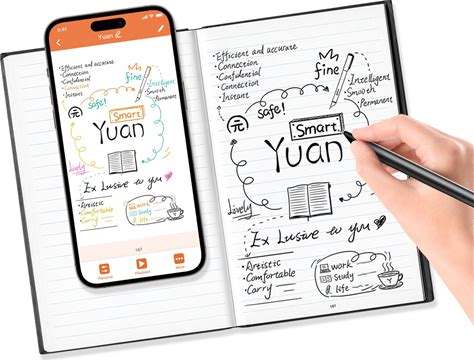 9:41
Yuan
•Efficient and accurate
•Connection
•Confidencial
•Connection
•Instant
fine
Intelligent
Smooth
Permanent
safe!
π
Smart
Yuan
Lively
Ex Lusive to you
•Areistic
•Comfortable
•Carry
work
Study
& life
147
Playback
More
•Efficient and accurate
•Connection
•Confidencial
•Connection
•Instant
fine
Intelligent
Smooth
Permanent
safe!
π
Smart
Yuan
Lively
Ex Lusive to you
•Areistic
•Comfortable
•Carry
work
Study
& life
147